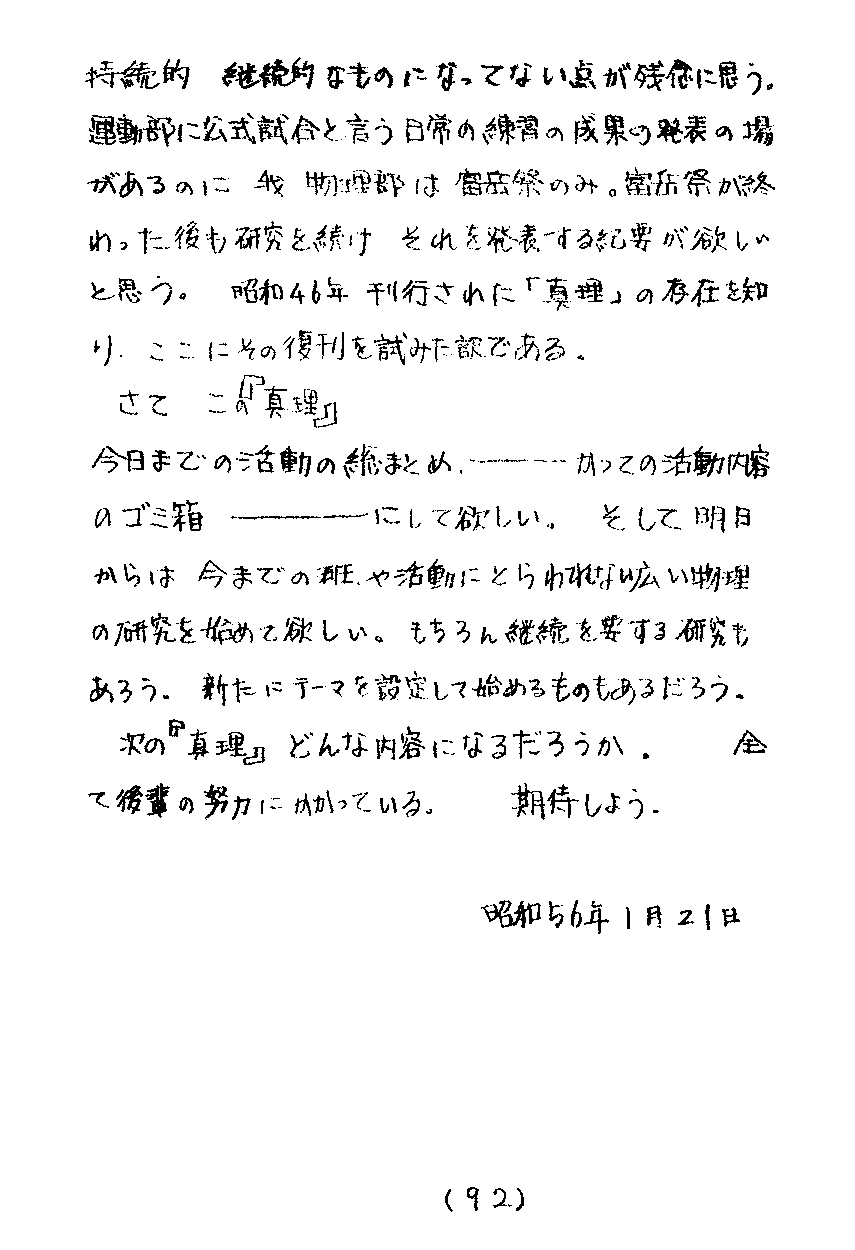 持続的 継続的なものになってない点が残念に思う。
運動部に公式試合と言う日常の練習の成果の発表の場
があるのに 我 物理部は富岳祭のみ。富岳祭が終
わった後も研究を続け それを発表する紀要が欲しい
と思う。 昭和46年 刊行された「真理」の存在を知
り、ここにその復刊を試みた訳である。
さて この『真理』
今日までの活動の総まとめ、―――― かっての活動内容
のゴミ箱 ――――にして欲しい。 そして明日
からは 今までの班、や活動にとらわれない広い物理
の研究を始めて欲しい。もちろん継続を要する研究も
あろう。 新たにテーマを設定して始めるものもあるだろう。
次の『真理』どんな内容になるだろうか。 全
て後輩の努力にかかっている。 期待しよう。
昭和56年1月21日
(92)